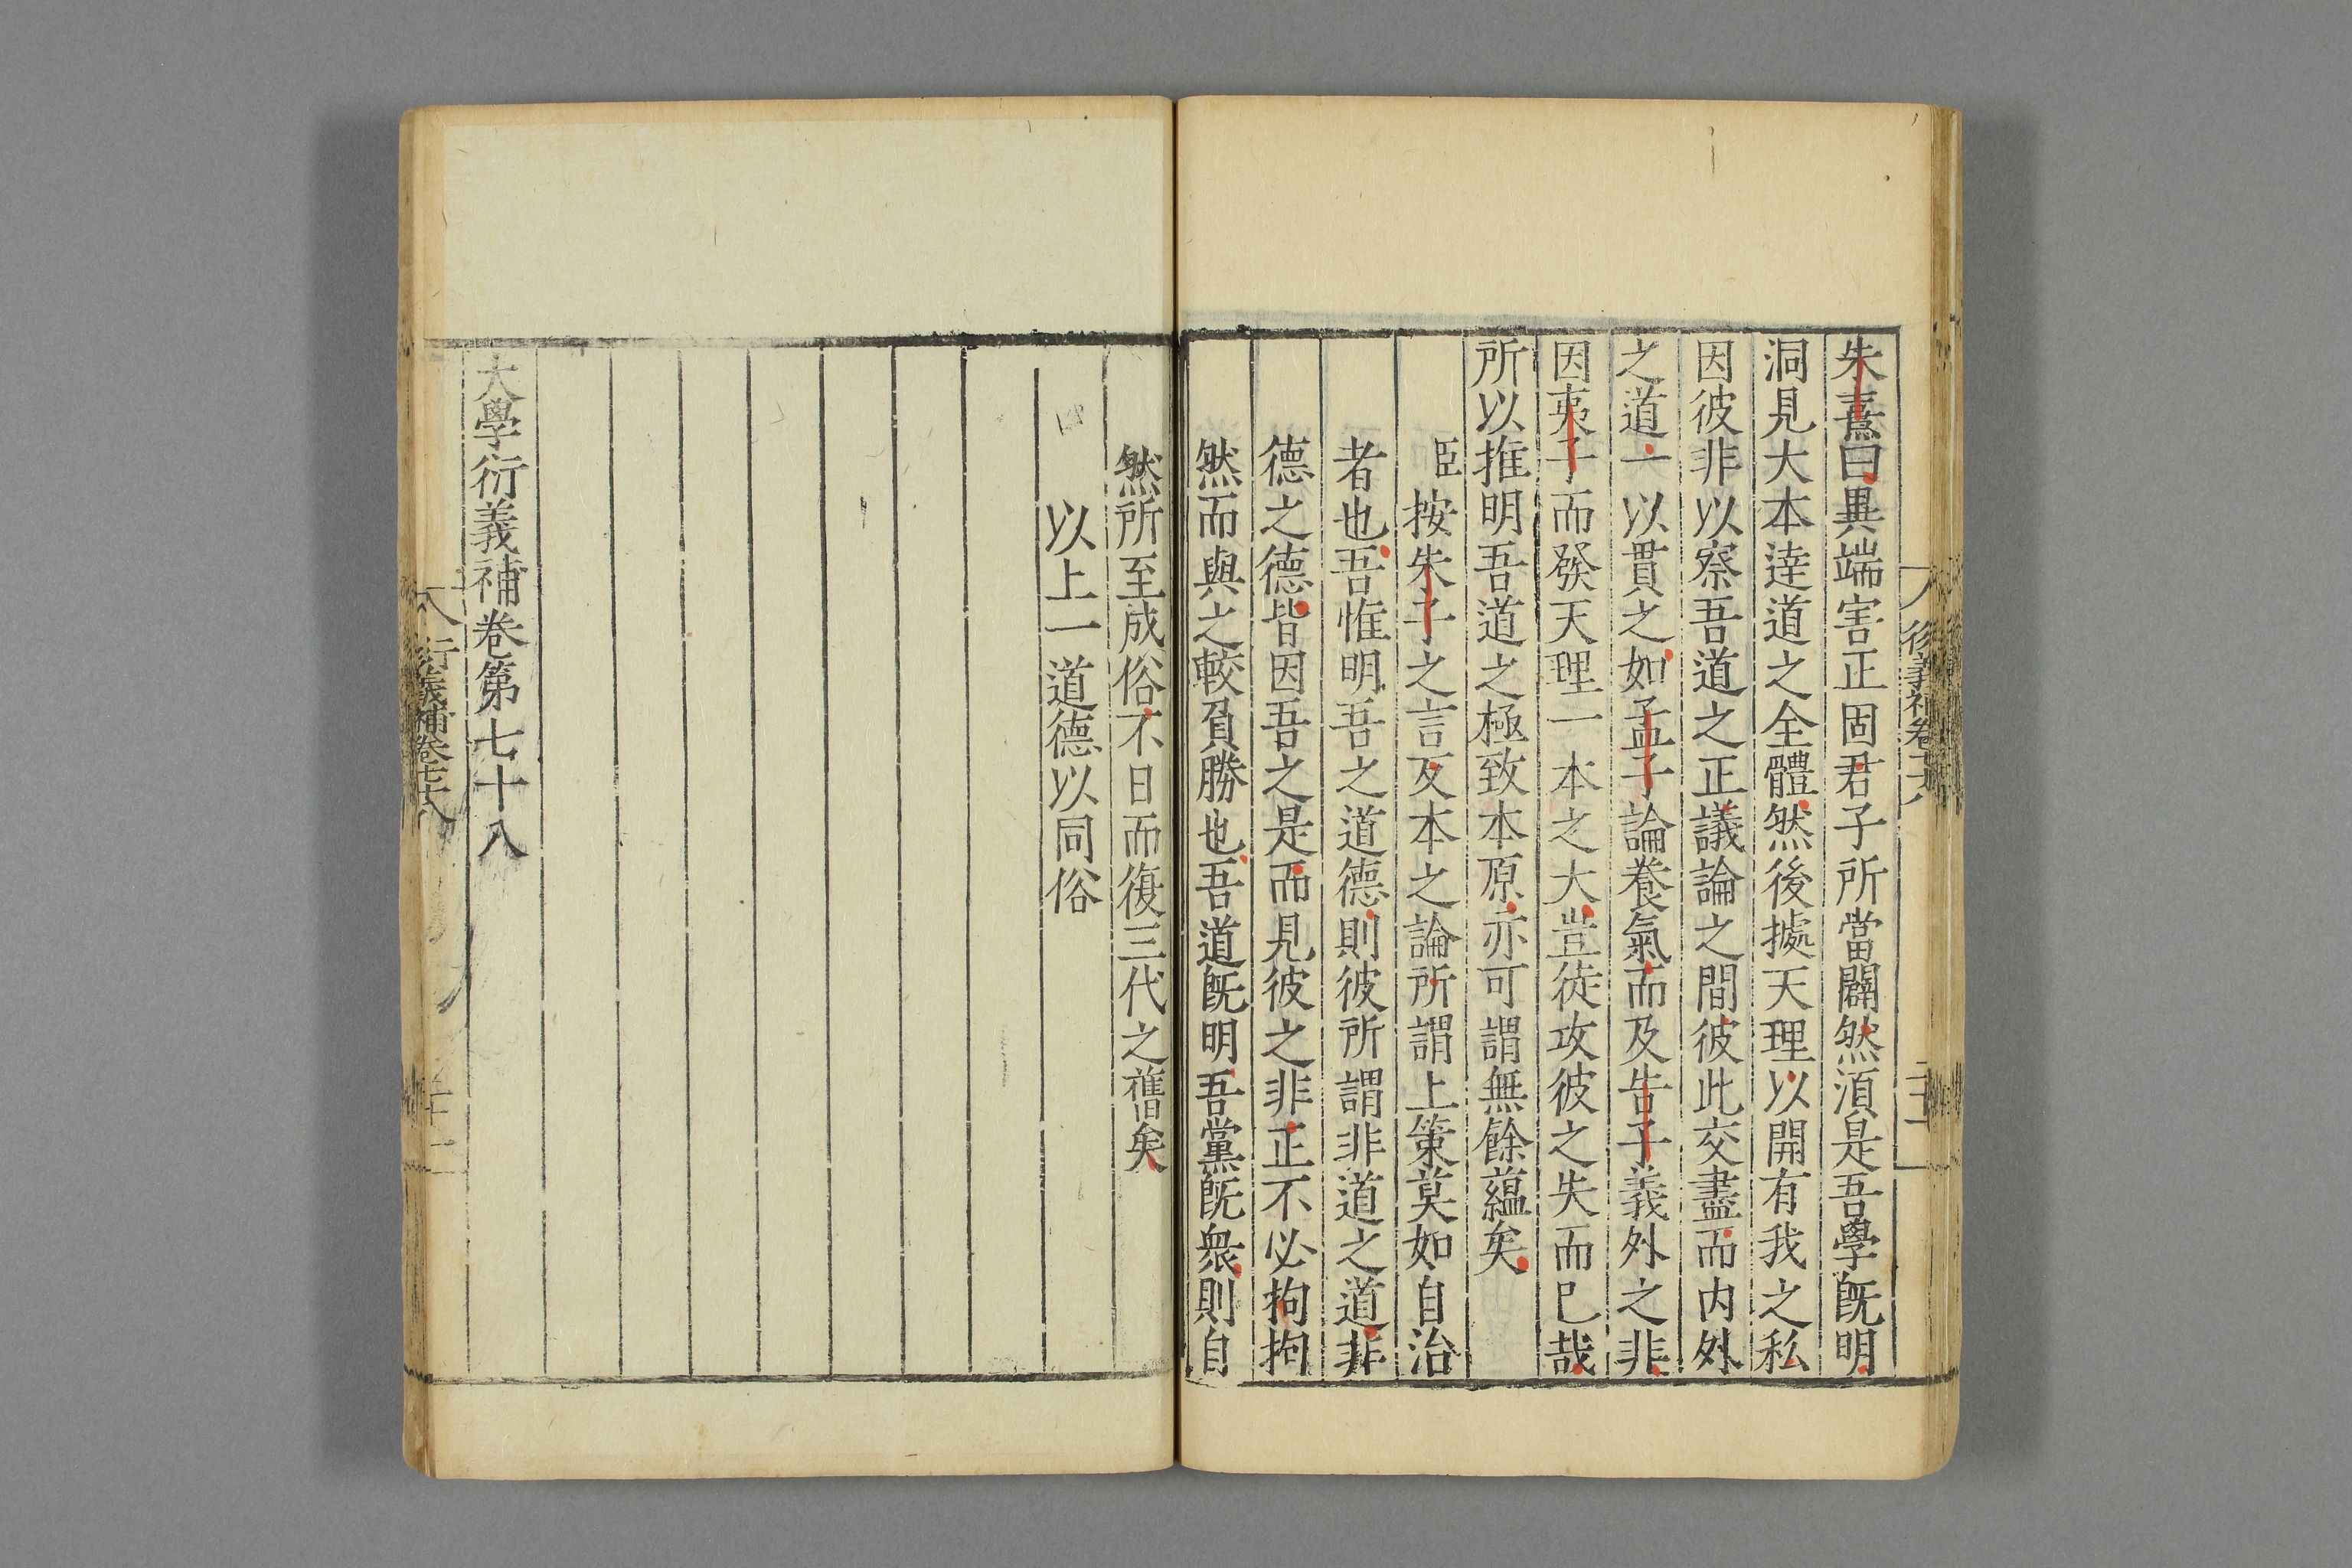 朱熹曰異端害正固君子所當闢然湏是吾學旣明
洞見大本達道之全體然後據天理以開有我之私
因彼非以察吾道之正議論之間彼此交盡而内外
之道一以貫之如孟子論養氣而及告子義外之非
因夷子而發天理一本之大豈徒攻彼之失而已哉
所以推明吾道之極致本原亦可謂無餘藴矣
臣按朱子之言反本之論所謂上策莫如自治
者也吾惟明吾之道德則彼所謂非道之道非
德之德皆因吾之是而見彼之非正不必拘拘
然而與之較負勝也吾道旣明吾黨旣衆則自
然所至成俗不日而復三代之舊矣
以上一道德以同俗
大學衍義補卷第七十八